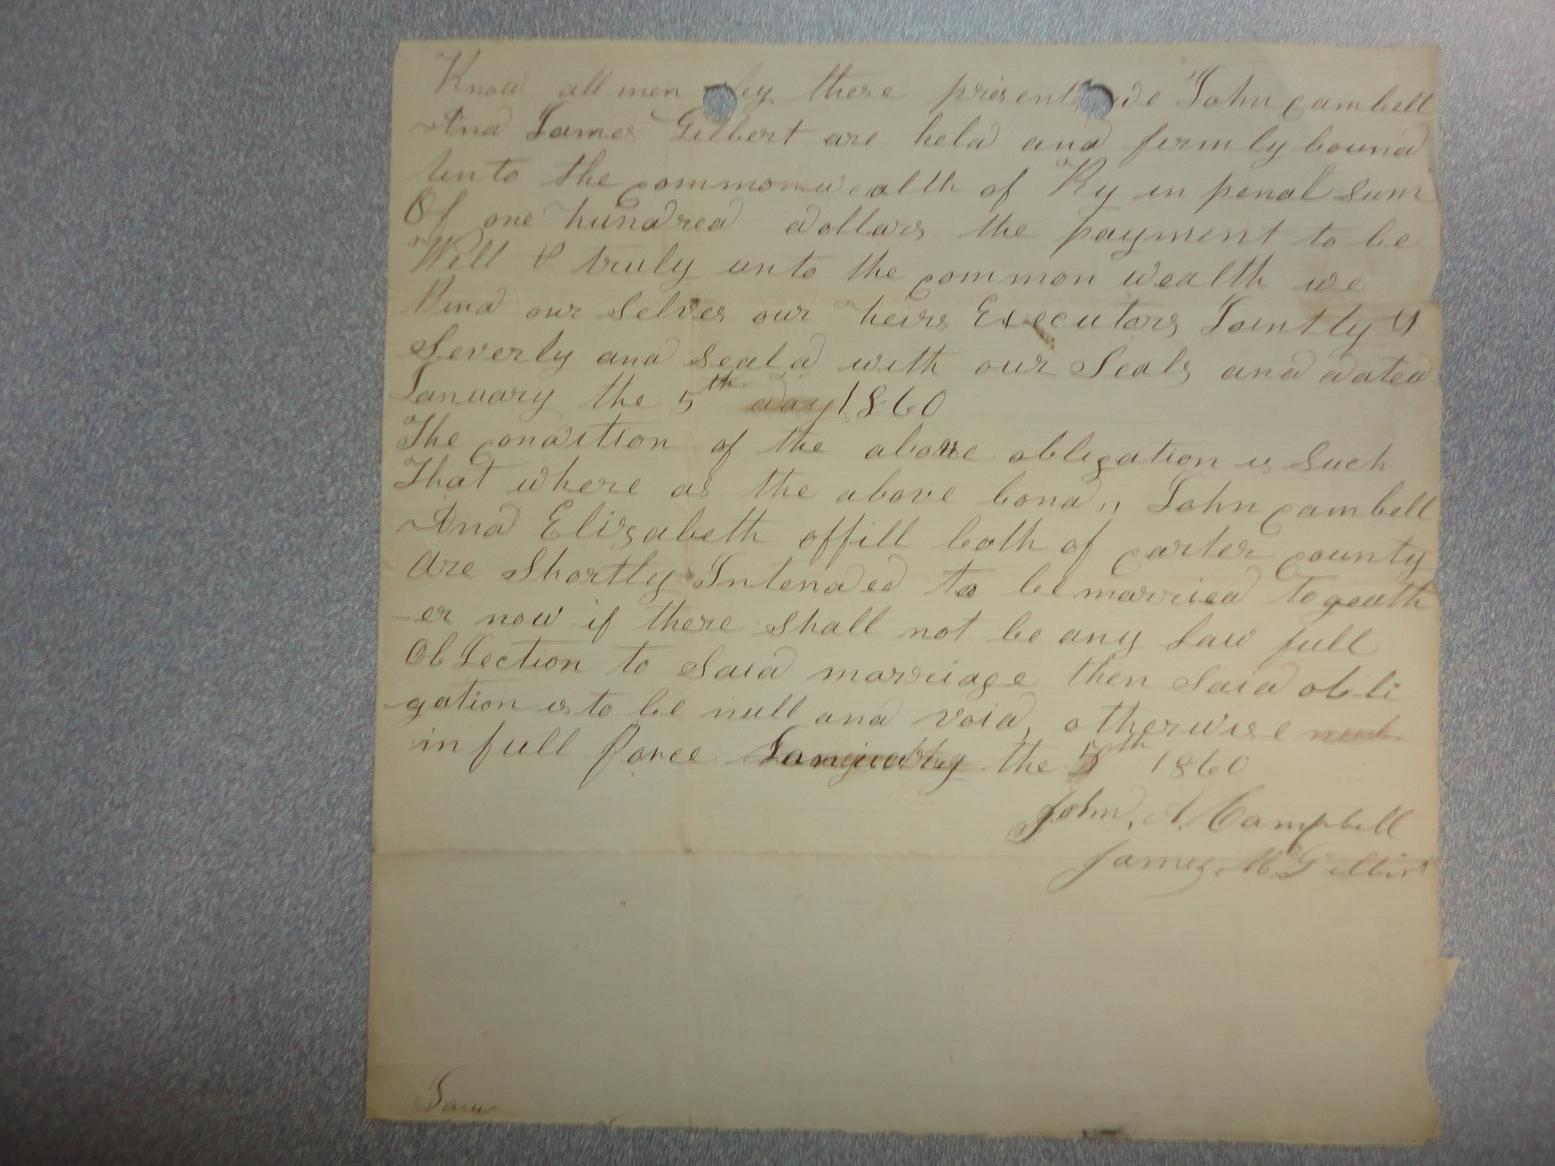 Know all men by these presents we John Cambell
And James Gilbert are held and firmly bound
unto the commonwealth of Ky in penal sum
Of one hundred dollars the payment to be
Well & truly unto the common wealth we
Bind our Selves our heirs Executors Jointly &
Severly and seald with our Seals and dated
January the 5th day 1860
The condition of the above obligation is Such
That where as the above bond,, John Cambell
And Elizabeth offill both of carter county
Are Shortly Intended to be married togeath
-er now if there shall not be any Law full
ObJection to Said marriage then Said obli
-gation is to be null and void, otherwise
in full force January the 5th 1860
John. A. Campbell
James. M Gilbert